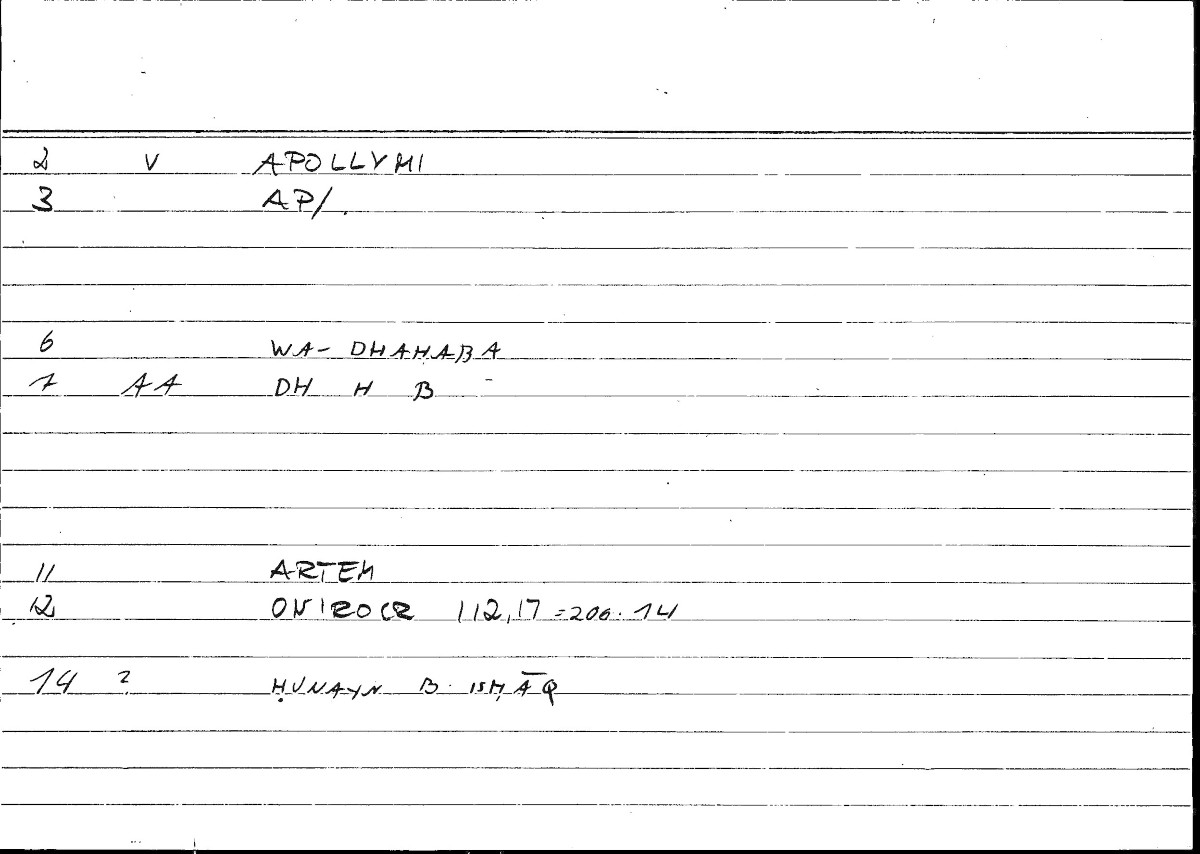 2 V APOLLYMI
3 AP/.
6 WA- DHAHABA
7 AA DH H B
11 ARTEM
12 ONIROCR 112,17 = 206.14
14 2 ḤUNAYN B. ISḤĀQ